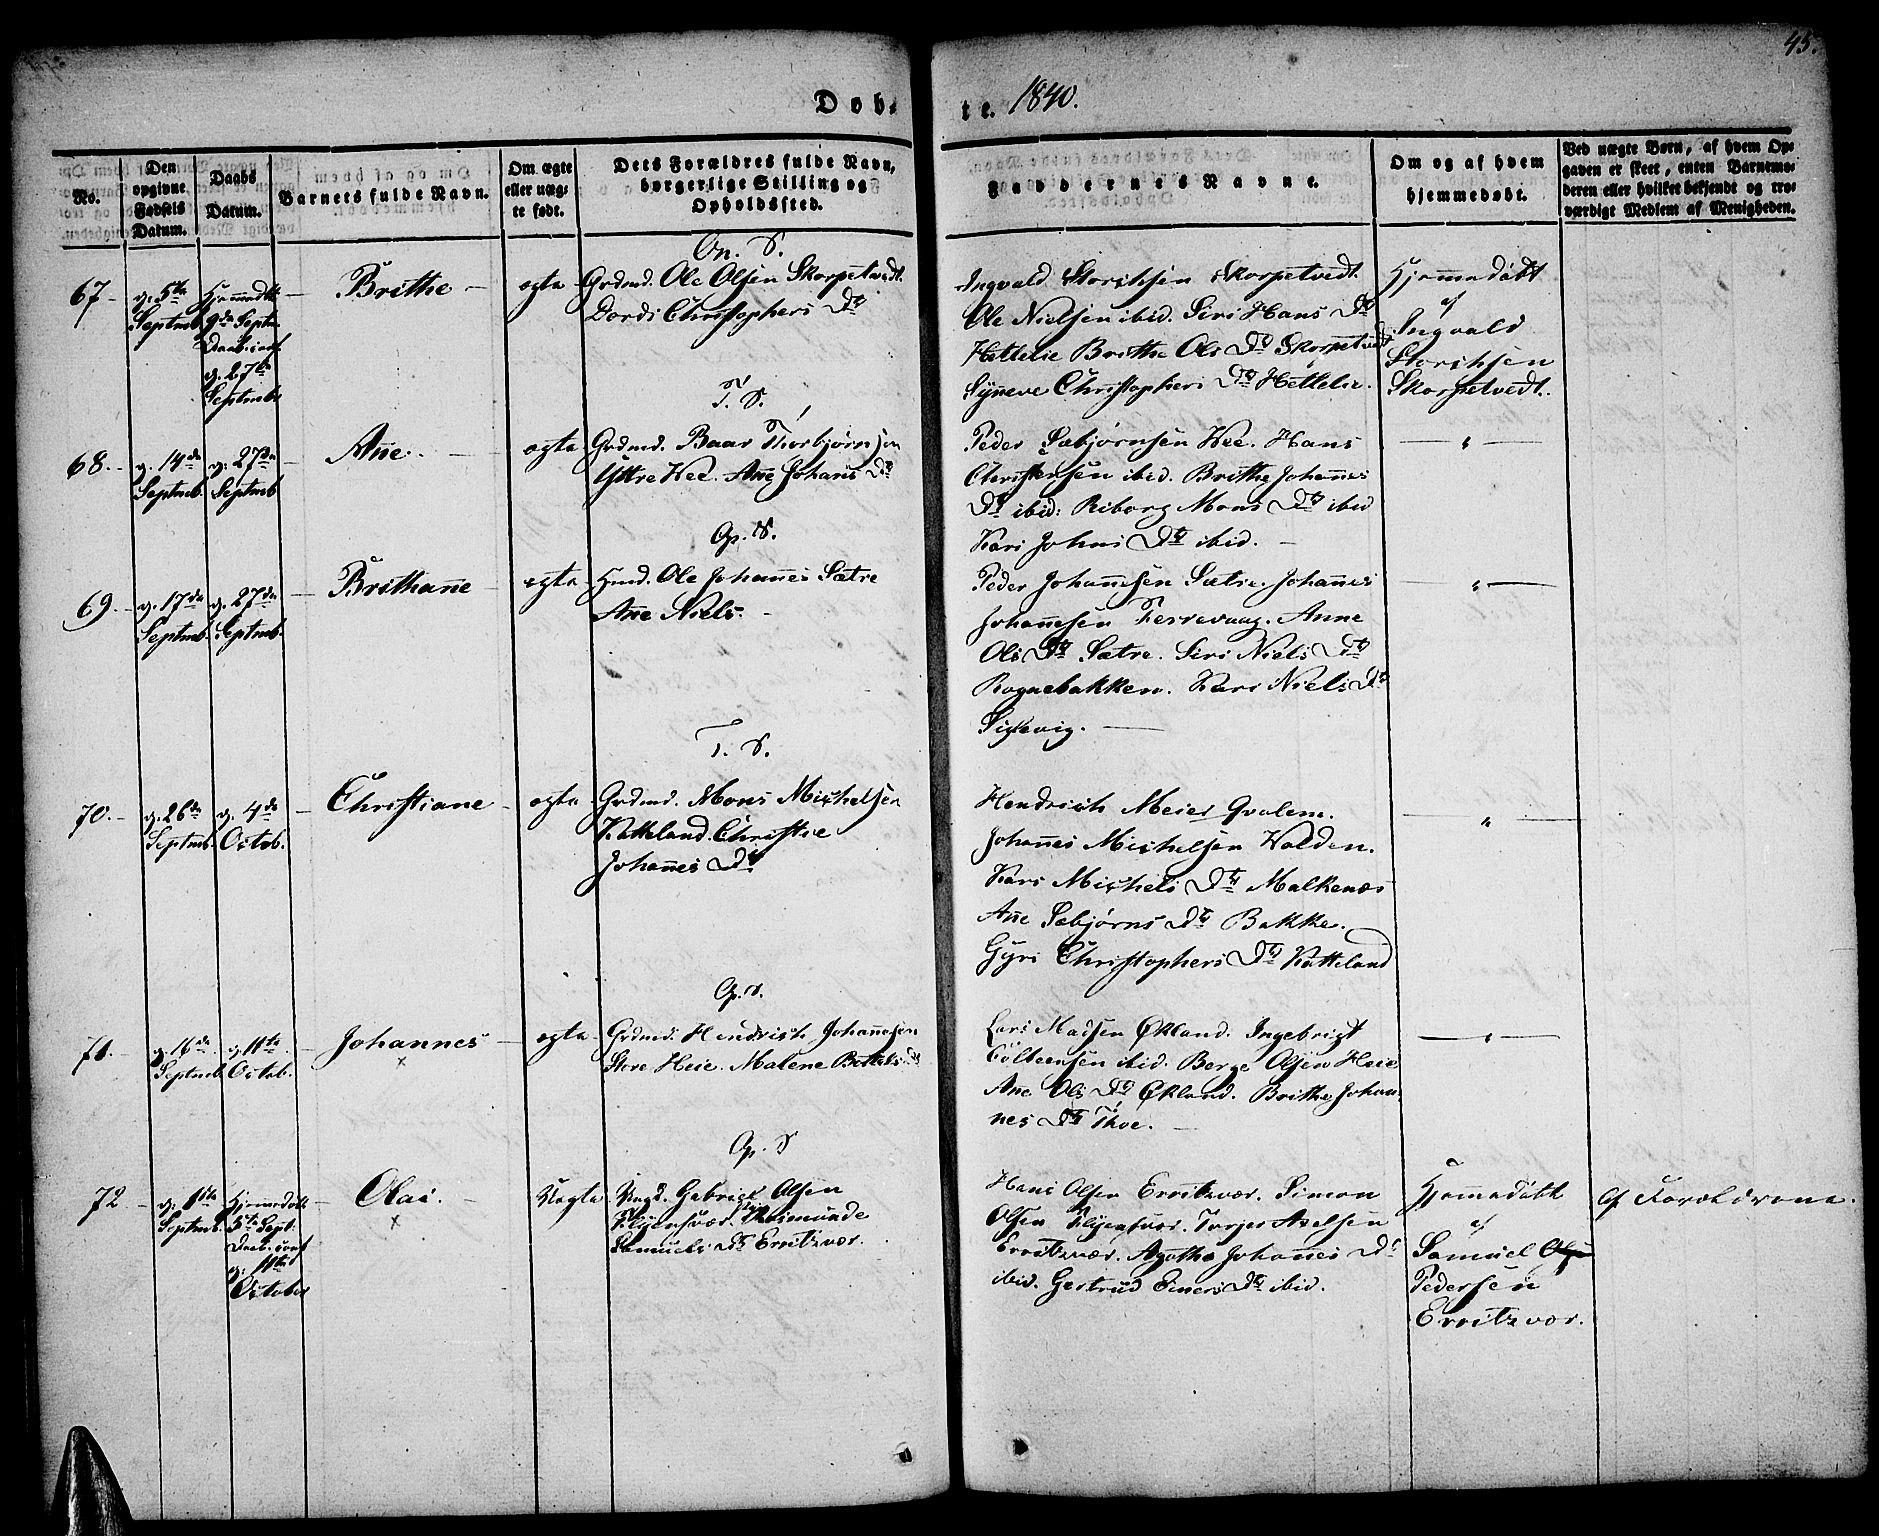 45.
Døb- te. 1840.
No.
Den opgivne Fødsels Datum.
Daabs Datum.
Barnets fulde Navn.
Om ægte eller uægte født.
Dets Forældres fulde Navn, borgerlige Stilling og Opholdssted.
Faddernes Navne.
Om og af hvem hjemmedøbt.
Ved uægte Børn, af hvem Opgaven er skeet, enten Barnemoderen eller hvilket bekjendt og troværdigt Medlem af Menigheden.
67
d. 5te
Septmb
Hjemmedøbt
9de Septr.
Daab. conf
d. 27de
Septmbr
Brithe
ægte
Op. S.
Grdmd. Ole Olsen Skorpetvedt.
Dordi Christophers Dtr
Ingvald Storchsen Skorpetvedt.
Ole Nielsen ibid. Siri Hans Dtr
Hettelie Brithe Ols Dtr Skorpetvedt
Synneve Christophers Dtr Hettelie.
Hjemmedøbt
af
Ingvald
Storchsen
Skorpetvedt.
68.
d. 14de
Septmb.
d. 27de
Septmb
Ane.
ægte
T. S.
Grdmd. Baar Thorbjørnsen
Yttre Hee. Ane Johans Dtr
Peder Sæbjørnsen Hee. Hans
Christensen ibid. Brithe Johannes
Dtr ibid: Riborg Mons Dtr ibid
Kari Johns Dtr ibid.
"
69.
d. 17de
Septmb.
d. 27de
Septmb.
Brithane
ægte
Op. S.
Hmd. Ole Johannes Sætre
Ane Niels.
Peder Johannesen Sætre. Johannes
Johannesen Ferrevaag. Anne
Ols Dtr Sætre. Siri Niels Dtr
Rognebakken. Kari Niels Dtr
Siglevig.
"
70.
d. 26de
Septmb.
d. 4de
Octob.
Christiane
ægte
T. S.
Grdmd. Mons Michelsen
Katteland. Christie
Johannes Dtr
Hendrich Meier Qvalem.
Johannes Michelsen Halden.
Kari Michels Dtr Malkenæs
Ane Sæbjørns Dtr Bakke.
Gyri Christophers Dtr Katteland
"
71.
d. 16de
Septmb
d. 11te
Octob.
Johannes
x
ægte
Op. S.
Grdmd. Hendrich Johannesen
Store Heie. Malene
Lars Madsen Økland. Ingebrigt
ibid. Berge Olsen Heie
Ane Ols Dtr Økland. Brithe Johan-
nes Dtr Thoe.
"
72
d. 1ste
Septmb.
Hjemmedøbt
5te Sept.
Daab. conf
d. 11te
October
Olai.
x
Uægte
Op. S
Ungd. Gabriel Olsen
Rosmunde
Samuels Dtr Ervitzvær.
Hans Olsen Ervitzvær. Simon
Olsen Terjer Axelsen
Ervitzvær. Agathe Johannes Dtr
ibid. Gertrud Einers Dtr ibid.
Hjemmedøbt
af
Samuel
Pedersen
Ervitzvær.
Af Forældrene.